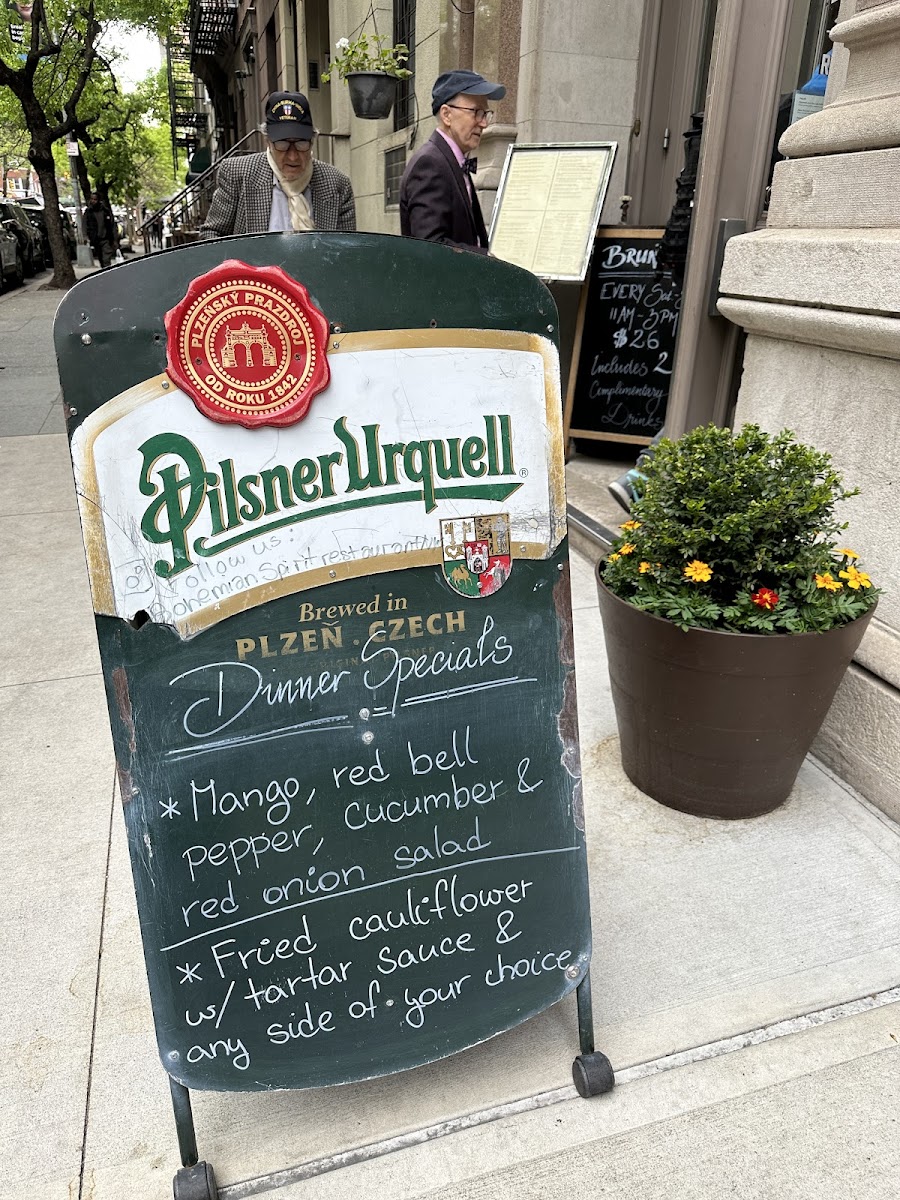 VETERAN
PLZEŇSKÝ PRAZDROJ
OD ROKU 1842
Pilsner Urquell ®
Follow us:
Bohemian Spirit restaurant
Brewed in
PLZEŇ . CZECH
Dinner Specials
* Mango, red bell
pepper, cucumber &
red onion salad
* Fried cauliflower
w/ tartar sauce &
any side of your choice
BRUN
EVERY Sat-S
11AM - 3PM
$26
Includes 2
Complimentary
Drinks